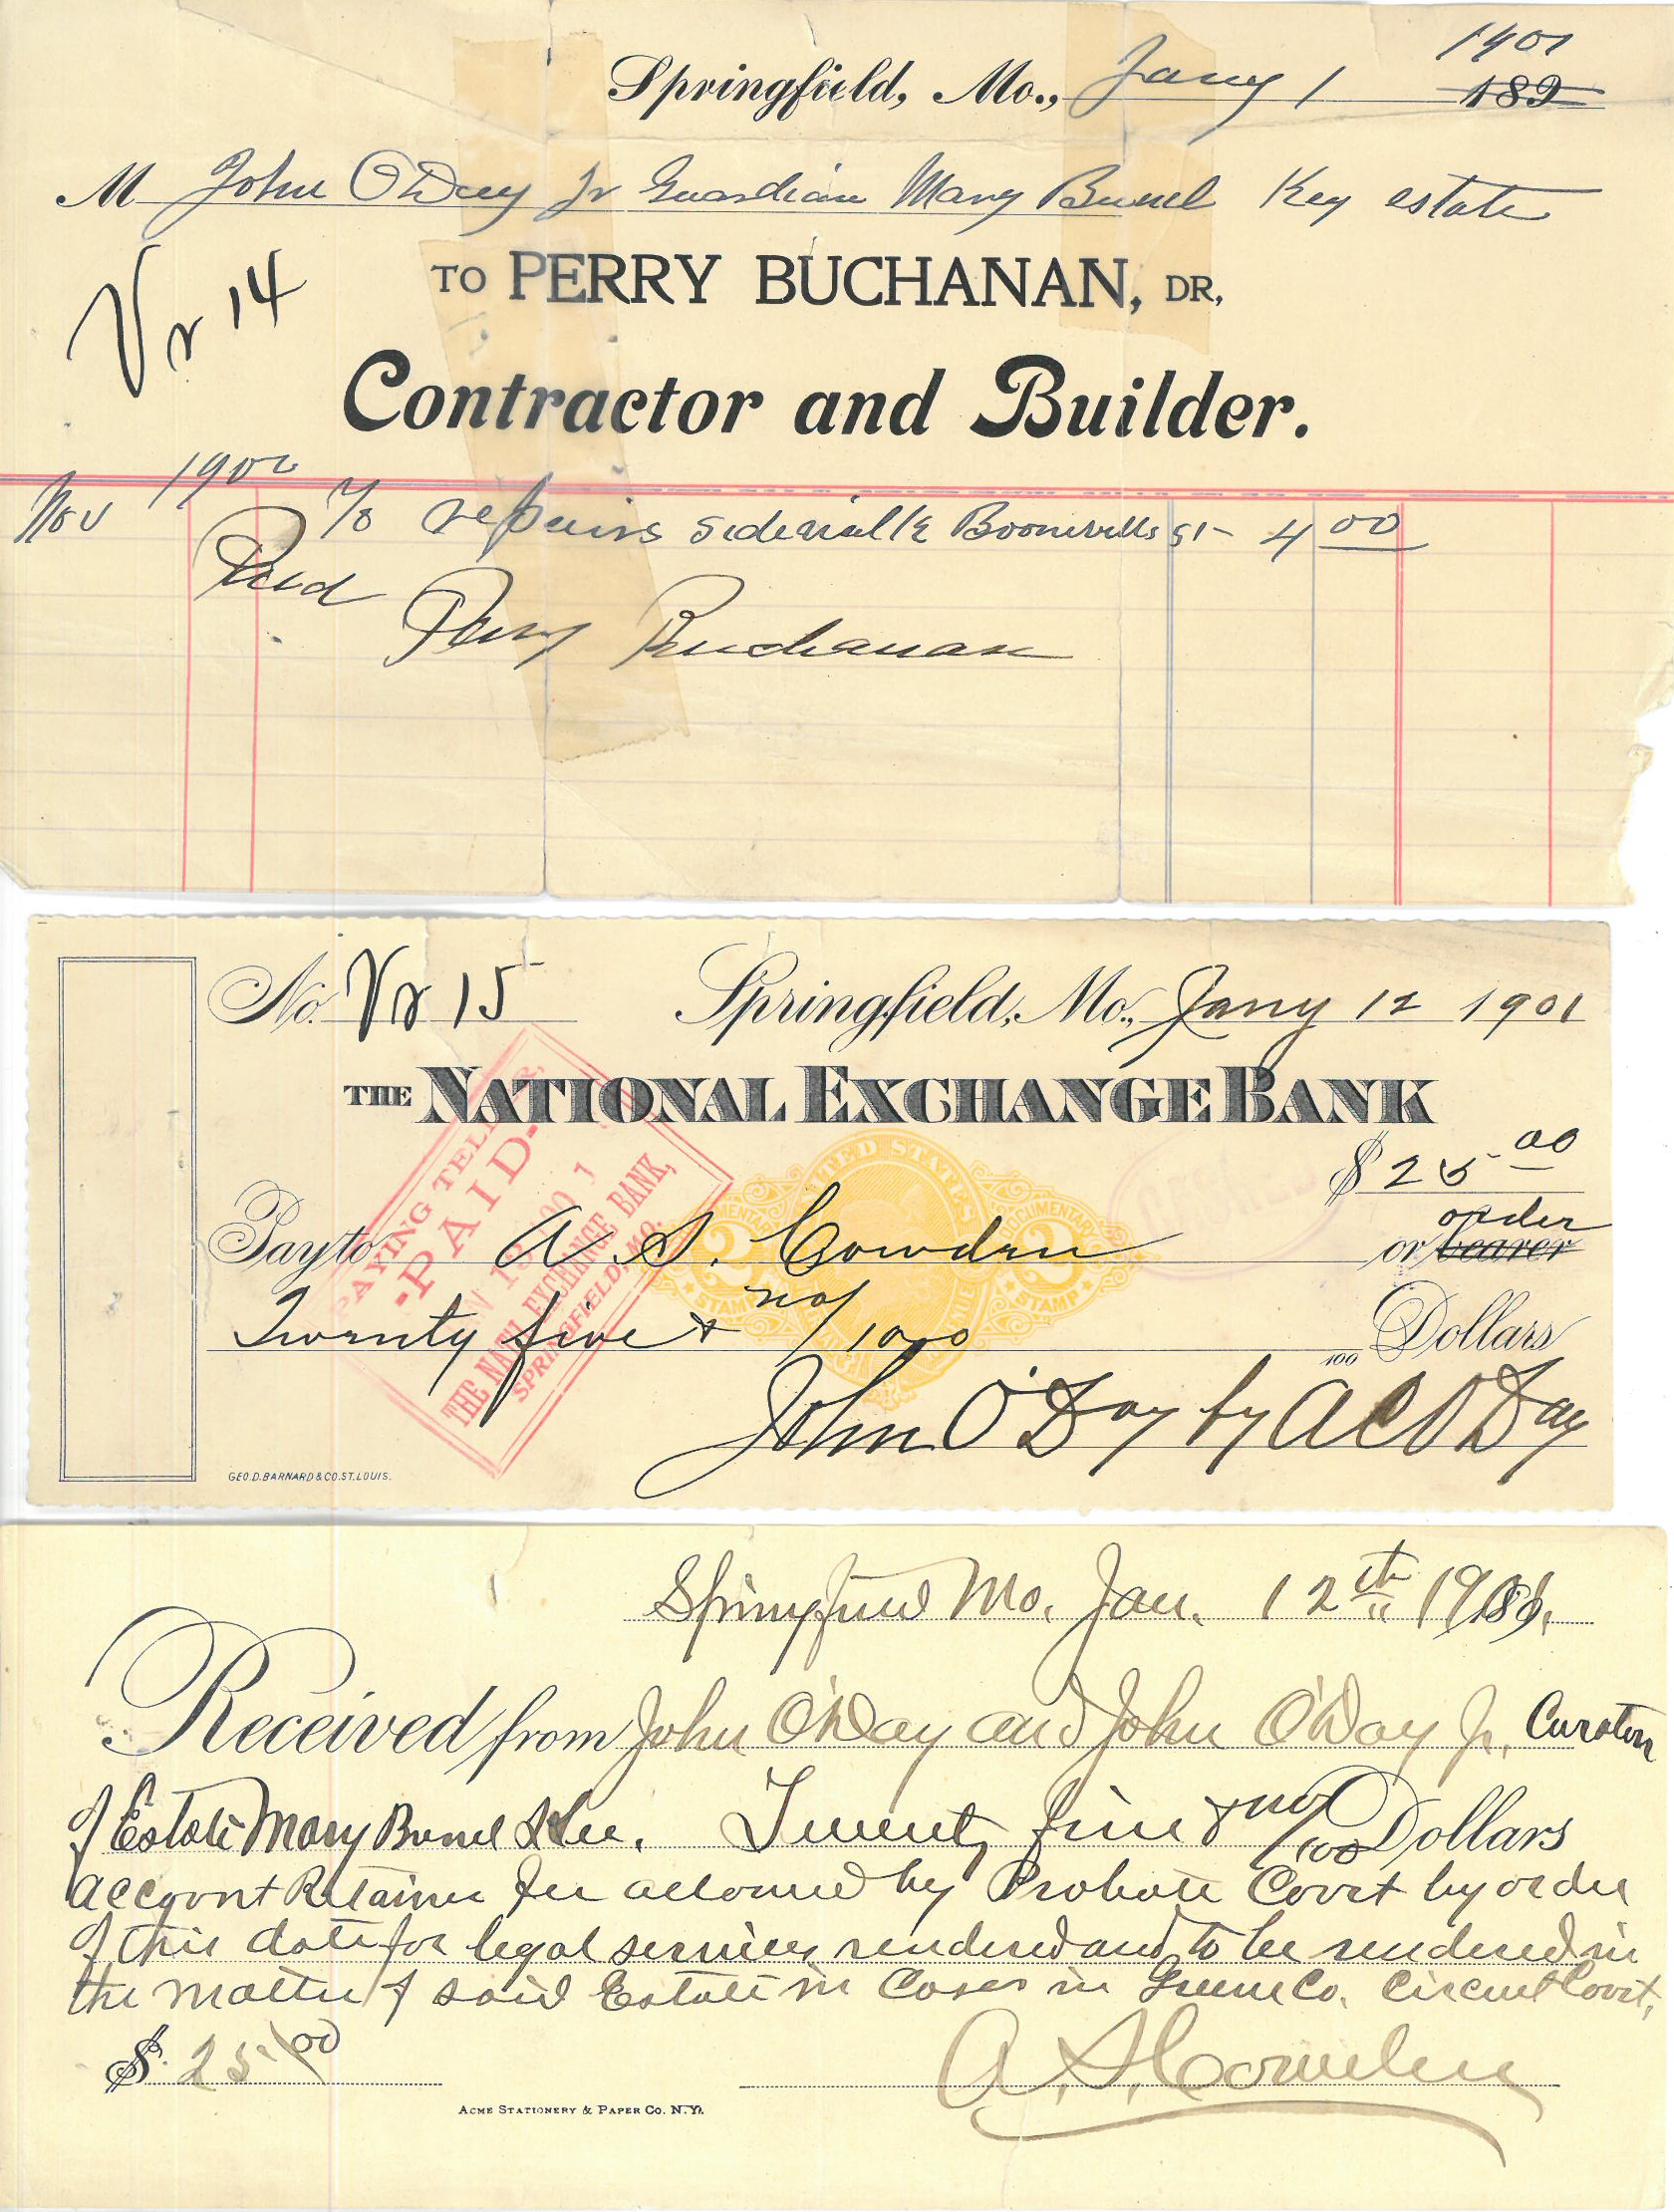 1901
Springfield, Mo., Jany 1 189
M John O'Day Jr Guardian Mary Bunel Key estate
Vr 14
TO PERRY BUCHANAN, DR,
Contractor and Builder.
1900
Nov To repairs sidewalk Boonville St 4 00
Paid
Perry Buchanan
No. Vr 15 Springfield, Mo., Jany 12 1901
THE NATIONAL EXCHANGE BANK
$25 00
order
Pay to A. S. Cowden or bearer
Twenty five & no/100 100 Dollars
John O'Day by A C O'Day
GEO. D. BARNARD & CO. ST. LOUIS.
PAYING TELLER,
-PAID-
1901
THE NAT'L EXCHANGE BANK,
SPRINGFIELD, MO.
UNITED STATES
DOCUMENTARY
2 2
STAMP STAMP
Springfield Mo. Jan. 12th 1901.
Received from John O'Day and John O'Day Jr, Curators
of Estate Mary Bunel Twenty five & no/100 Dollars
account Retainer fee allowed by Probate Court by order
of this date for legal services rendered and to be rendered in
the matter of said Estate in Cases in Greene Co. Circuit Court,
$ 25.00 A. S. Cowden
ACME STATIONERY & PAPER CO. N.Y.